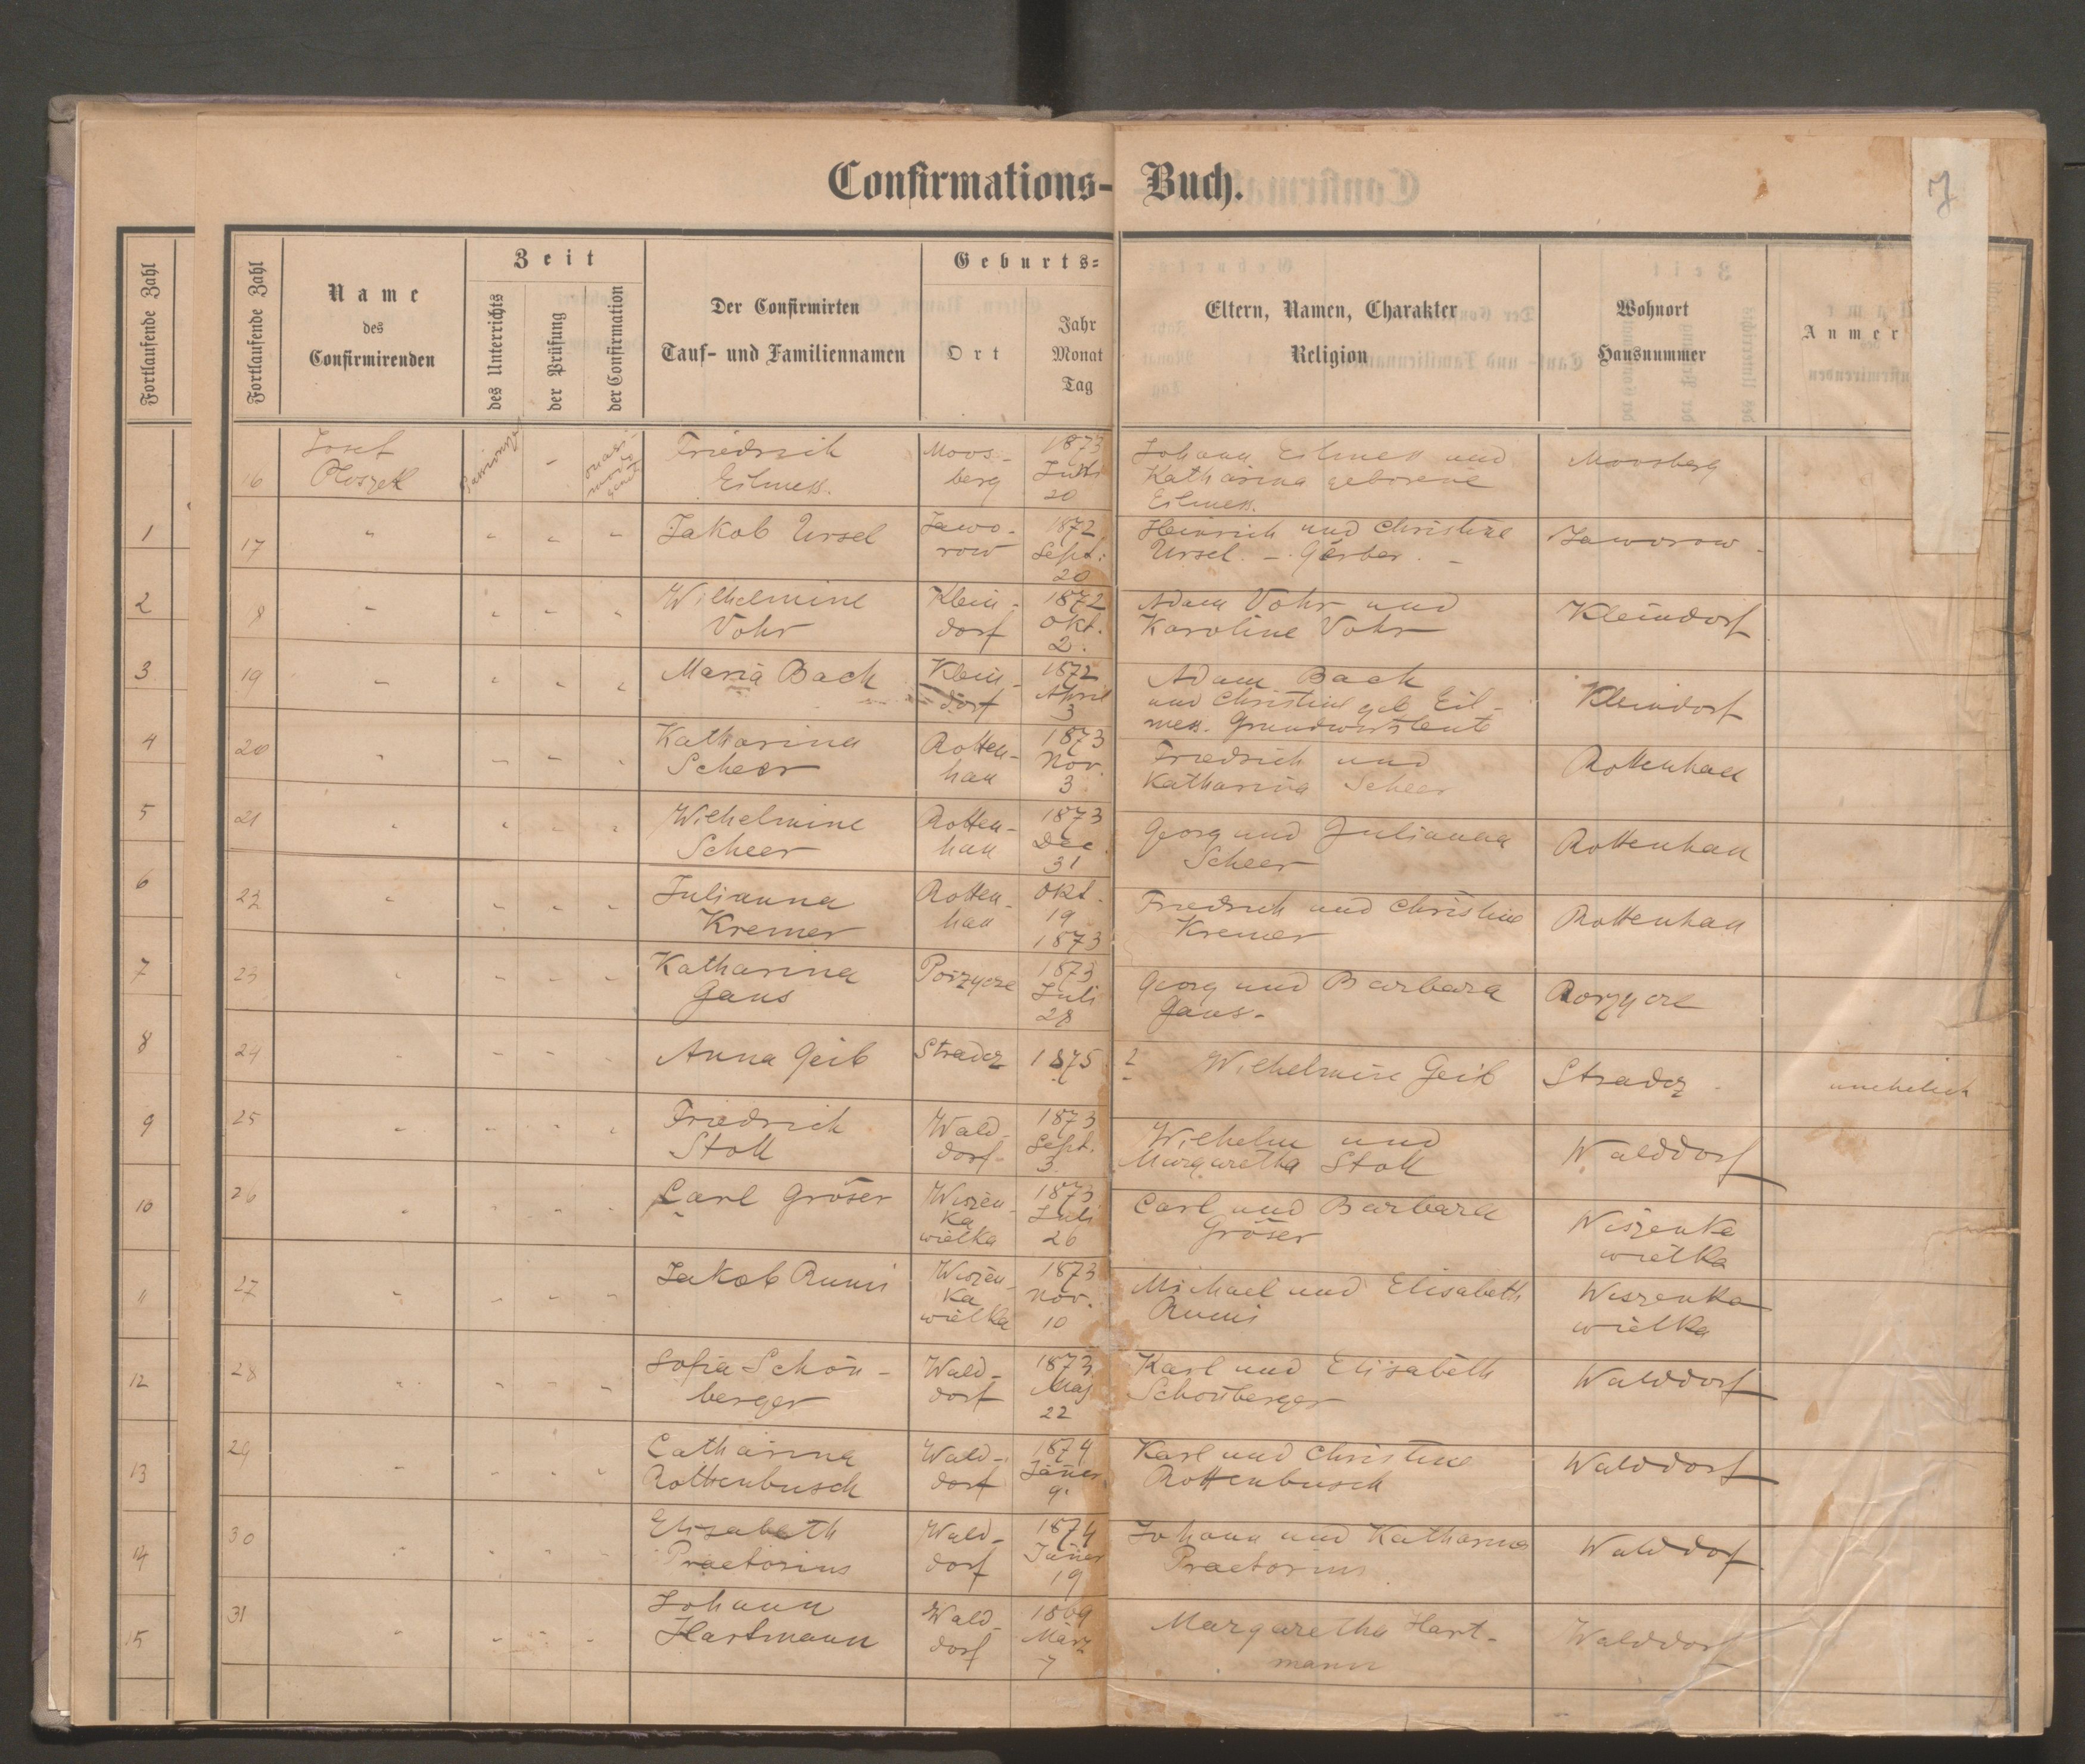 Confirmations-Buch.
7
Fortlaufende Zahl
Fortlaufende Zahl
Name
des
Confirmirenden
Zeit
des Unterrichts
der Prüfung
der Confirmation
Der Confirmirten
Tauf- und Familiennamen
Geburts=
Ort
Jahr
Monat
Tag
Eltern, Namen, Charakter
Religion
Wohnort
Hausnummer
Anmer
1
2
3
4
5
6
7
8
9
10
11
12
13
14
15
16
Josef
Ploszek
-
Friedrich
Eilmess.
Moos-
berg
1873
Juli
20
Johann Eilmess und
Katharina geborene
Eilmess.
Moosberg
17
Jakob Ursel
Jawo-
row
1872
Sept.
20
Heinrich und Christine
Ursel. - Gerber. -
Jaworow -
8
Wilhelmine
Vohr
Klein-
dorf
1872
Okt.
2.
Adam Vohr und
Karoline Vohr
Kleindorf
19
Maria Bach
Klein-
dorf
1872
April
3
Adam Bach
und Christine geb Eil-
mess. Grundwirtsleute
Kleindorf
20
Katharina
Scheer
Rotten-
han
1873
Nov.
3
Friedrich und
Katharina Scheer
Rottenhan
21
Wilhelmine
Scheer
Rotten-
han
1873
Dec.
31
Georg und Julianna
Scheer
Rottenhan
22
Julianna
Kremer
Rotten-
han
Okt.
19
1873
Friedrich und Christine
Kremer
Rottenhan
23
Katharina
Gans
Porzycze
1873
Juli
28
Georg und Barbara
Gans-
Porzycze
24
Anna Geib
Stradcz
1875
? Wilhelmine Geib
Stradcz
unehelich
25
Friedrich
Stoll
Wald-
dorf-
1873
Sept.
3.
Wilhelm und
Margaretha Stoll
Walddorf
26
Carl Gröser
Wiszen-
ka
wielka
1873
Juli
26
Carl und Barbara
Gröser
Wiszenka
wielka
27
Jakob Rumi
Wiszen-
ka
wielka
1873
Nov.
10
Michael und Elisabeth
Rumi
Wiszenka
wielka
28
Sofia Schön-
berger
Wald-
dorf
1873
Maj
22
Karl und Elisabeth
Schönberger
Walddorf
29
Catharina
Rottenbusch
Wald-
dorf
1874
Jäner
9.
Karl und Christine
Rottenbusch
Walddorf
30
Elisabeth
Praetorius
Wald-
dorf
1874
Jäner
19
Johann und Katharina
Praetorius
Walddorf
31
Johann
Hartmann
Wald-
dorf
1869
März
7
Margaretha Hart-
mann
Walddorf